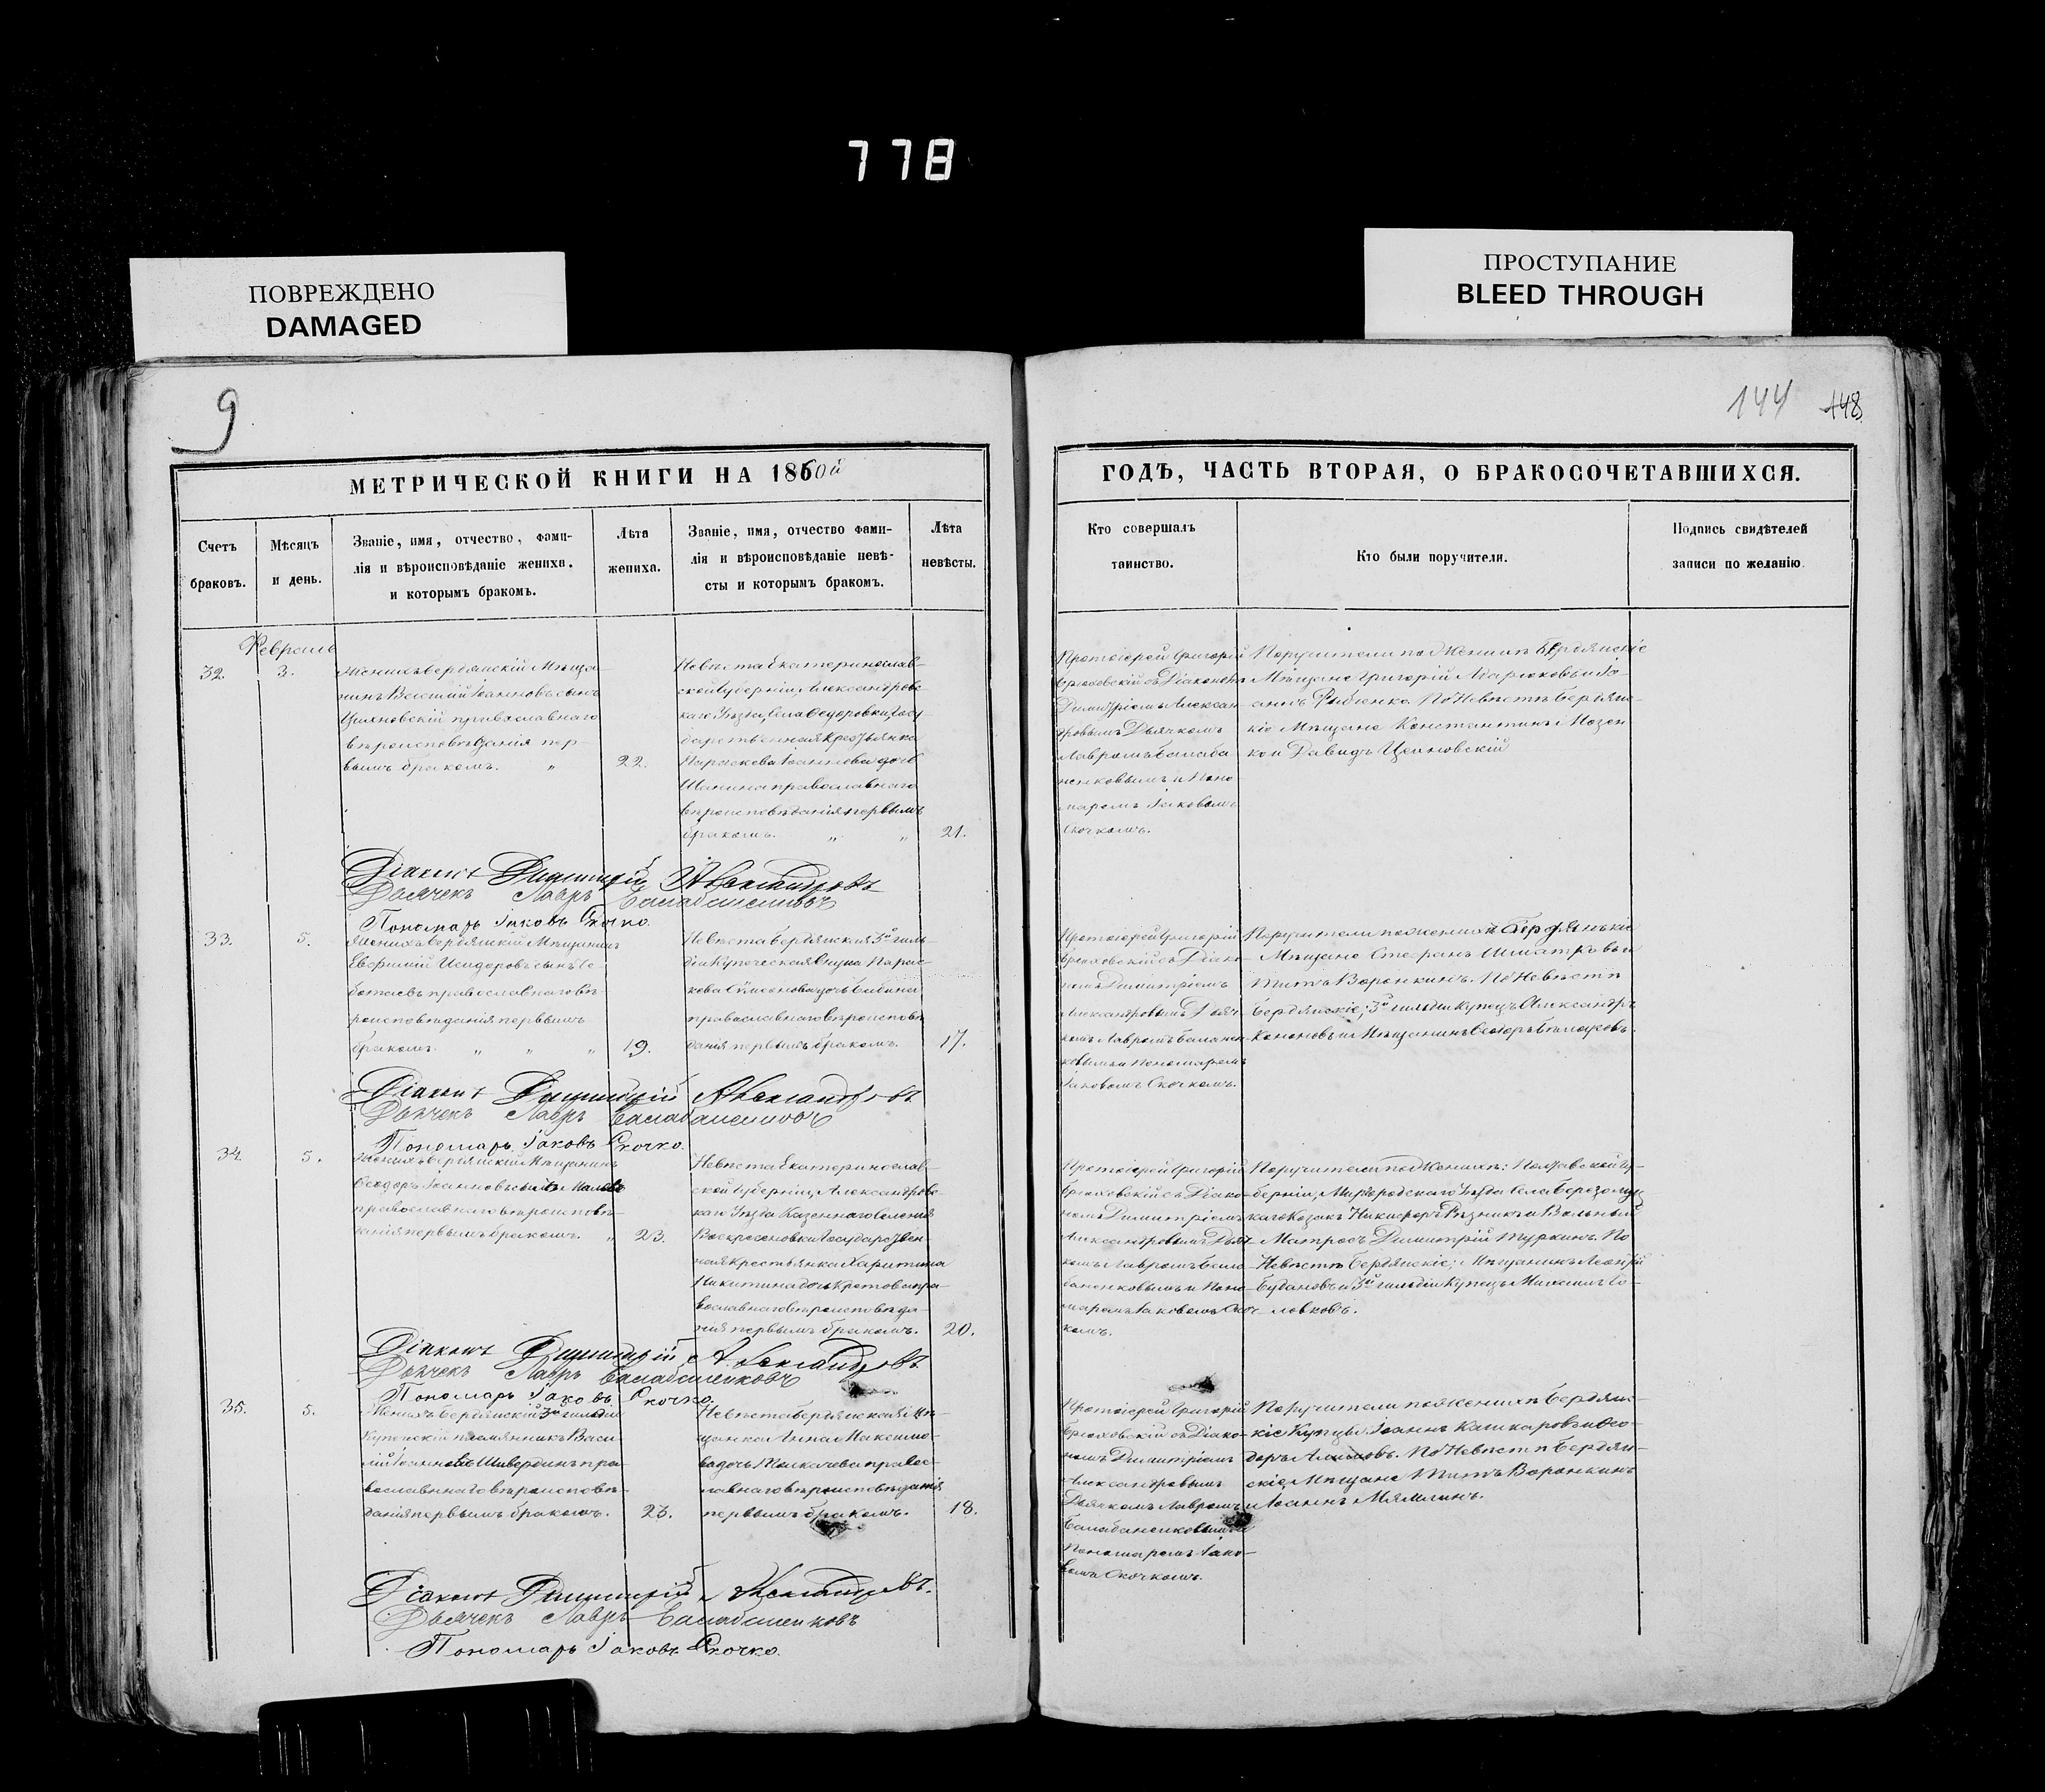 778
ПОВРЕЖДЕНО
DAMAGED
ПРОСТУПАНИЕ
BLEED THROUGH
9
144 148
МЕТРИЧЕСКОЙ КНИГИ НА 1860й
ГОДЪ, ЧАСТЬ ВТОРАЯ, О БРАКОСОЧЕТАВШИХСЯ.
Счетъ
браковъ.
Мѣсяцъ
и день.
Званіе, имя, отчество, фами-
лія и вѣроисповѣданіе жениха,
и которымъ бракомъ.
Лѣта
жениха.
Званіе, имя, отчество фами-
лія и вѣроисповѣданіе невѣ-
сты и которымъ бракомъ.
Лѣта
невѣсты.
Кто совершалъ
таинство.
Кто были поручители.
Подпись свидѣтелей
записи по желанію.
Февраль
32.
3.
Женихъ Бердянскій Мѣща-
нинъ Василій Іоанновъ сынъ
православнаго
вѣроисповѣданія пер-
вымъ бракомъ. „
22.
Невѣста Екатеринослав-
ской Губерніи, Александровс-
каго Уѣзда, Села Федоровки, Госу-
дарственная Крестьянка
Параскева Іоаннова дочь
Шанина православнаго
вѣроисповѣданія первымъ
бракомъ. „ „
21.
Протоіерей Григорій
Брюховскій съ Діакономъ
Димитріемъ Алексан-
дровымъ Дьячкомъ
Лавромъ Балаба
ненковымъ и Поно
маремъ Іаковомъ
Скочкомъ.
Поручители по Женихѣ Бердянскіе
Мѣщане Григорій и Іо-
аннъ По Невѣстѣ Бердянс-
кіе Мѣщане Константинъ Мозен
ко и Давидъ
Діаконъ Димитрій Александровъ
Дьячекъ Лавръ Балабаненковъ
Пономарь Іаковъ Скочко.
33.
5.
Женихъ Бердянскій Мѣщанинъ
Евфимій Исидоровъ сынъ
православнаго вѣ-
роисповѣданія первымъ
бракомъ. „ „ „
19.
Невѣста Бердянская 3й гиль-
діи Купеческая Внука Парас-
кева Сѵмеонова дочь Бабина
православнаго вѣроисповѣ
данія первымъ бракомъ.
17.
Протоіерей Григорій
Брюховскій съ Діако-
номъ Димитріемъ
Александровымъ Дьяч-
комъ Лавромъ
ковымъ и Пономаремъ
Іаковомъ Скочкомъ.
Поручители по женихѣ Бердянскіе
Мѣщане Стефанъ и
Титъ Воронкинъ. По Невѣстѣ
Бердянскіе; 3й гильдіи Купецъ Александръ
Кононовъ и Мѣщанинъ Ѳеодоръ
Діаконъ Димитрій Александровъ
Дьячекъ Лавръ Балабаненковъ
Пономарь Іаковъ Скочко.
34.
5.
Женихъ Бердянскій Мѣщанинъ
Ѳеодоръ Іоанновъ сынъ
православнаго вѣроисповѣ-
данія первымъ бракомъ. „
23.
Невѣста Екатеринослав-
ской Губерніи, Александровс-
каго Уѣзда Казеннаго Селенія
Воскресеновки Государствен-
ная Крестьянка Харитина
Никитина дочь Кротова пра-
вославнаго вѣроисповѣда-
нія первымъ бракомъ.
20.
Протоіерей Григорій
Брюховскій съ Діако-
номъ Димитріемъ
Александровымъ Дьяч-
комъ Лавромъ Бала-
баненковымъ и Поно-
маремъ Іаковомъ Скоч-
комъ.
Поручители по Женихѣ: Полтавской Гу-
берніи, Миргородскаго Уѣзда Села
Козакъ Никифоръ Рѣзникъ и Вольный
Матросъ Димитрій Туркинъ. По
Невѣстѣ Бердянскіе; Мѣщанинъ
Будановъ и 3й гильдіи Купецъ Михаилъ Го-
ловковъ.
Діаконъ Димитрій Александровъ
Дьячекъ Лавръ Балабаненковъ
Пономарь Іаковъ Скочко.
35.
5.
Женихъ Бердянскій 3й гильдіи
Купеческій племянникъ Васи-
лій Іоанновъ Шивердинъ пра-
вославнаго вѣроисповѣ-
данія первымъ бракомъ.
23.
Невѣста Бердянская Мѣ-
щанка Анна Максимо-
ва дочь Толкачева правос-
лавнаго вѣроисповѣданія
первымъ бракомъ.
18.
Протоіерей Григорій
Брюховскій съ Діако-
номъ Димитріемъ
Александровымъ
Дьячкомъ Лавромъ
Балабаненковымъ и
Пономаремъ Іако-
вомъ Скочкомъ.
Поручители по женихѣ Бердянс-
кіе Купцы: Іоаннъ Кашкаровъ и Ѳео-
доръ По Невѣстѣ Бердян-
скіе, Мѣщане Титъ Воронкинъ
и Іоаннъ Мямлинъ.
Діаконъ Димитрій Александровъ.
Дьячекъ Лавръ Балабаненковъ
Пономарь Іаковъ Скочко.